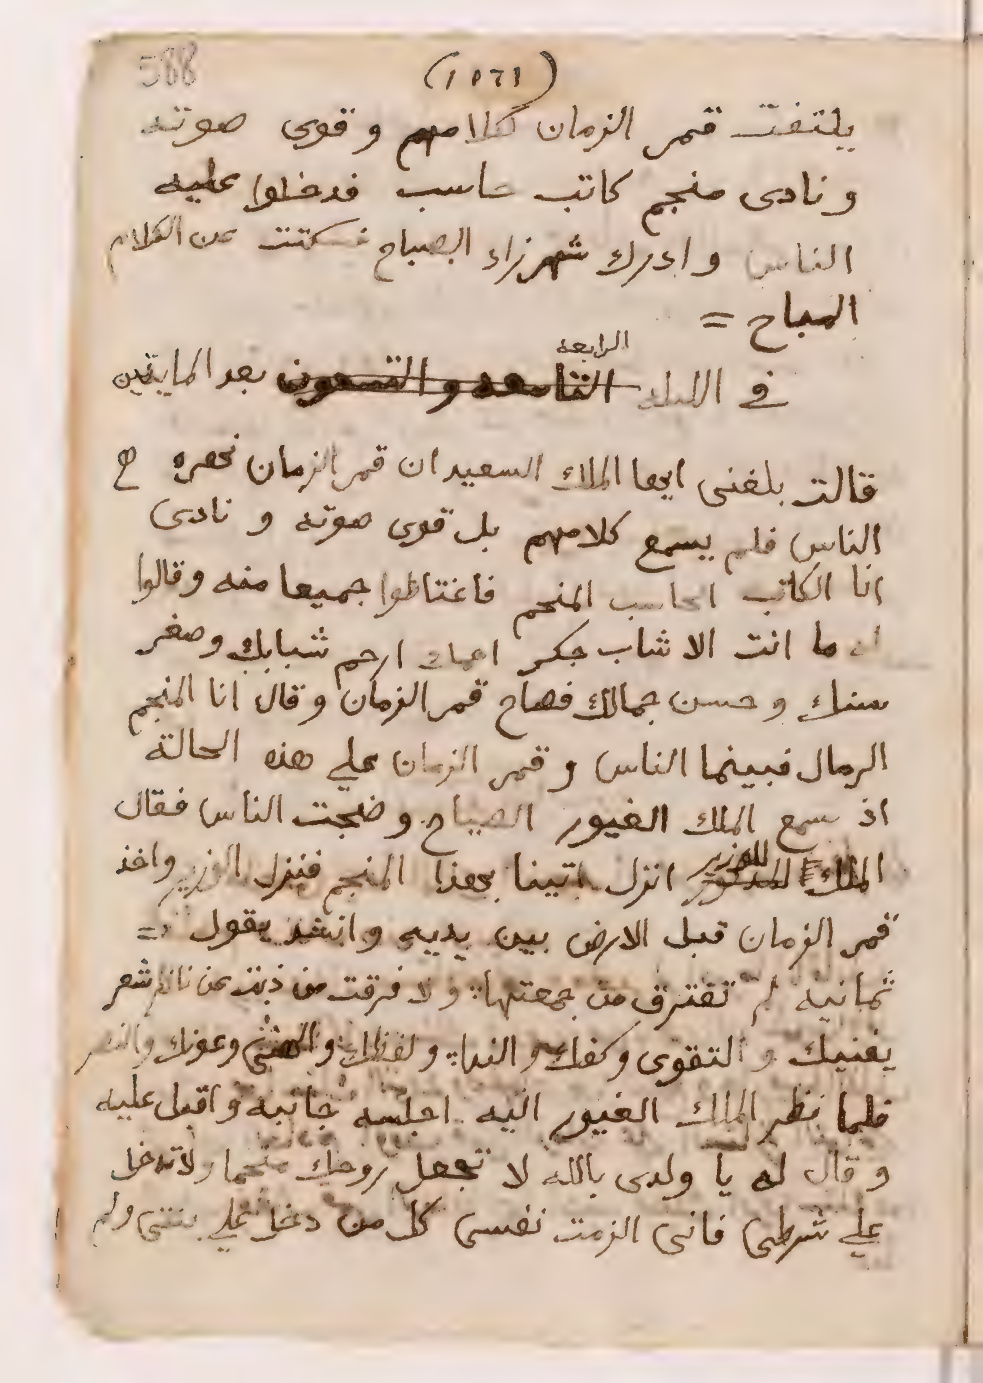 588
(١٥٦١)
يلتفت قمر الزمان لكلامهم و قوى صوته
و نادى منجم كاتب حاسب فدخلوا عليه
الناس و ادرك شهرزاد الصباح فسكتت عن الكلام
المباح =
الرابعه
في الليله التاسعه و التسعون بعد المايتين
قالت بلغنى ايها الملك السعيد ان قمر الزمان
الناس فلم يسمع كلامهم بل قوى صوته و نادى
انا الكاتب الحاسب المنجم فاغتاظوا جميعا منه وقالوا
له ما انت الا شاب ارحم شبابك وصغر
سنك و حسن جمالك فصاح قمر الزمان و قال انا المنجم
الرمال فبينما الناس و قمر الزمان علي هذه الحالة
اذ سمع الملك الغيور الصياح و ضجت الناس فقال
للوزير
الملك انزل اتينا بهذا المنجم فنزل الوزير واخذ
قمر الزمان قبل الارض بين يديه وانشد يقول =
ثمانيه لم تفترق من جمعتها ولا فرقت من ذبت عن ناظر شعر
يقنيك و التقوى وكفك و الندا و لفظك والمعنى وعزك والنصر
فلما نظر الملك الغيور اليه اجلسه جانبه و اقبل عليه
و قال له يا ولدى بالله لا تجعل روحك منجما ولا تدخل
علي شرطى فانى الزمت نفسى كل من دخل علي بنتى ولم